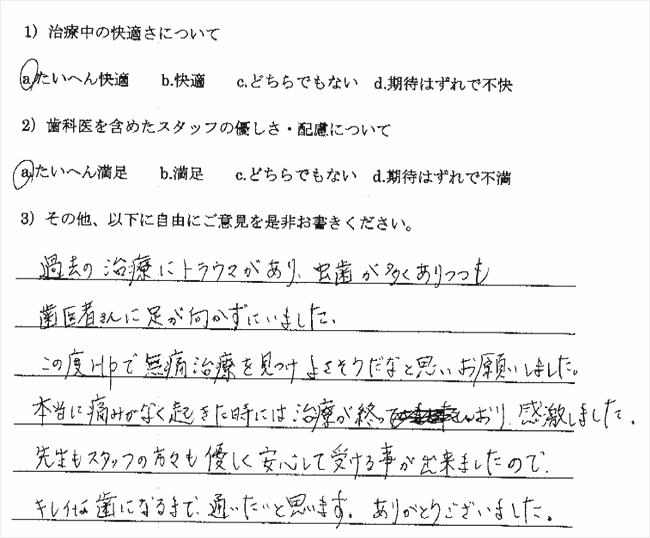 1）治療中の快適さについて
a.たいへん快適　b.快適　c.どちらでもない　d.期待はずれで不快
2）歯科医を含めたスタッフの優しさ・配慮について
a.たいへん満足　b.満足　c.どちらでもない　d.期待はずれで不満
3）その他、以下に自由にご意見を是非お書きください。
過去の治療にトラウマがあり、虫歯が多くありつつも
歯医者さんに足が向かずにいました。
この度HPで無痛治療を見つけよさそうだなと思いお願いしました。
本当に痛みがなく起きた時には治療が終っており、感激しました。
先生もスタッフの方々も優しく安心して受ける事が出来ましたので、
キレイな歯になるまで、通いたいと思います。ありがとうございました。